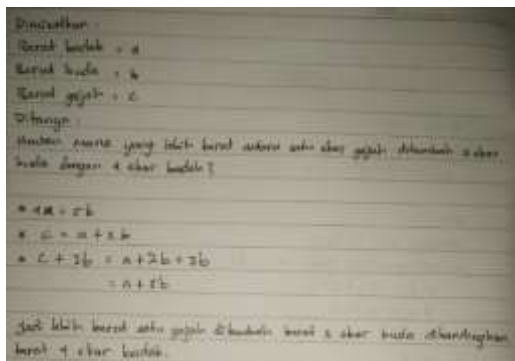 Dimisalkan :
Berat badak = a
Berat kuda = b
Berat gajah = c
Ditanya :
mana yang lebih berat antara satu ekor gajah ditambah 3 ekor
kuda dengan 4 ekor badak ?
* 4a = 5b
* c = a + 2b
* c + 3b = a + 2b + 3b
= a + 5b
Jadi lebih berat satu gajah ditambah berat 3 ekor kuda dibandingkan
berat 4 ekor badak.